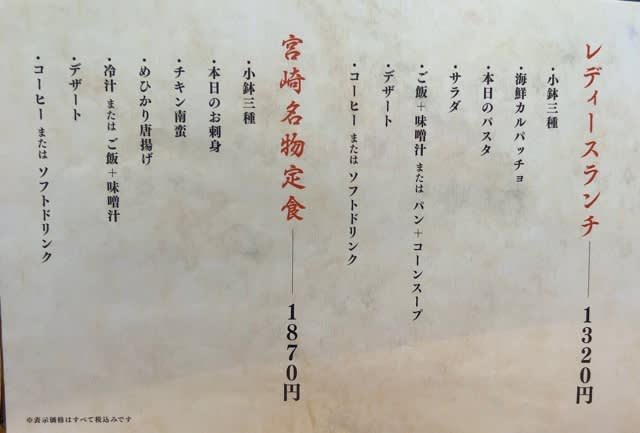 レディースランチ――1320円
・小鉢三種
・海鮮カルパッチョ
・本日のパスタ
・サラダ
・ご飯+味噌汁 または パン+コーンスープ
・デザート
・コーヒー または ソフトドリンク
宮崎名物定食――1870円
・小鉢三種
・本日のお刺身
・チキン南蛮
・めひかり唐揚げ
・冷汁 または ご飯+味噌汁
・デザート
・コーヒー または ソフトドリンク
※表示価格はすべて税込みです